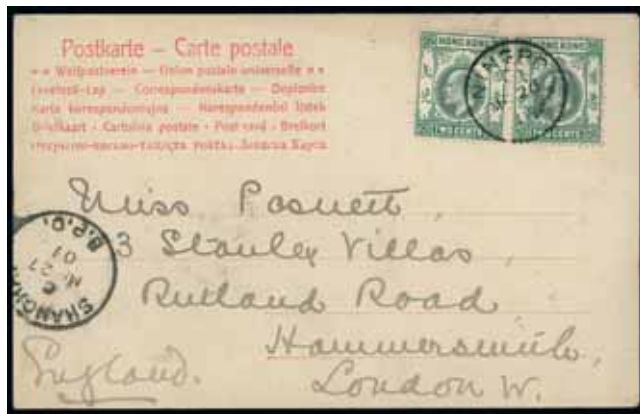 Postkarte – Carte postale
Weltpostverein — Union postale universelle
Levelező-Lap — Correspondenzkarte — Dopisnice
Karta korespondencyjna — Korespondenční lístek
Briefkaart - Cartolina postale - Post card - Brefkort
HONG KONG
HONG KONG
TWO CENTS
TWO CENTS
NINGPO
Miss Posnett,
3 Stanley Villas,
Rutland Road,
Hammersmith,
London W.
England.
SHANGHAI
B.P.O.
27